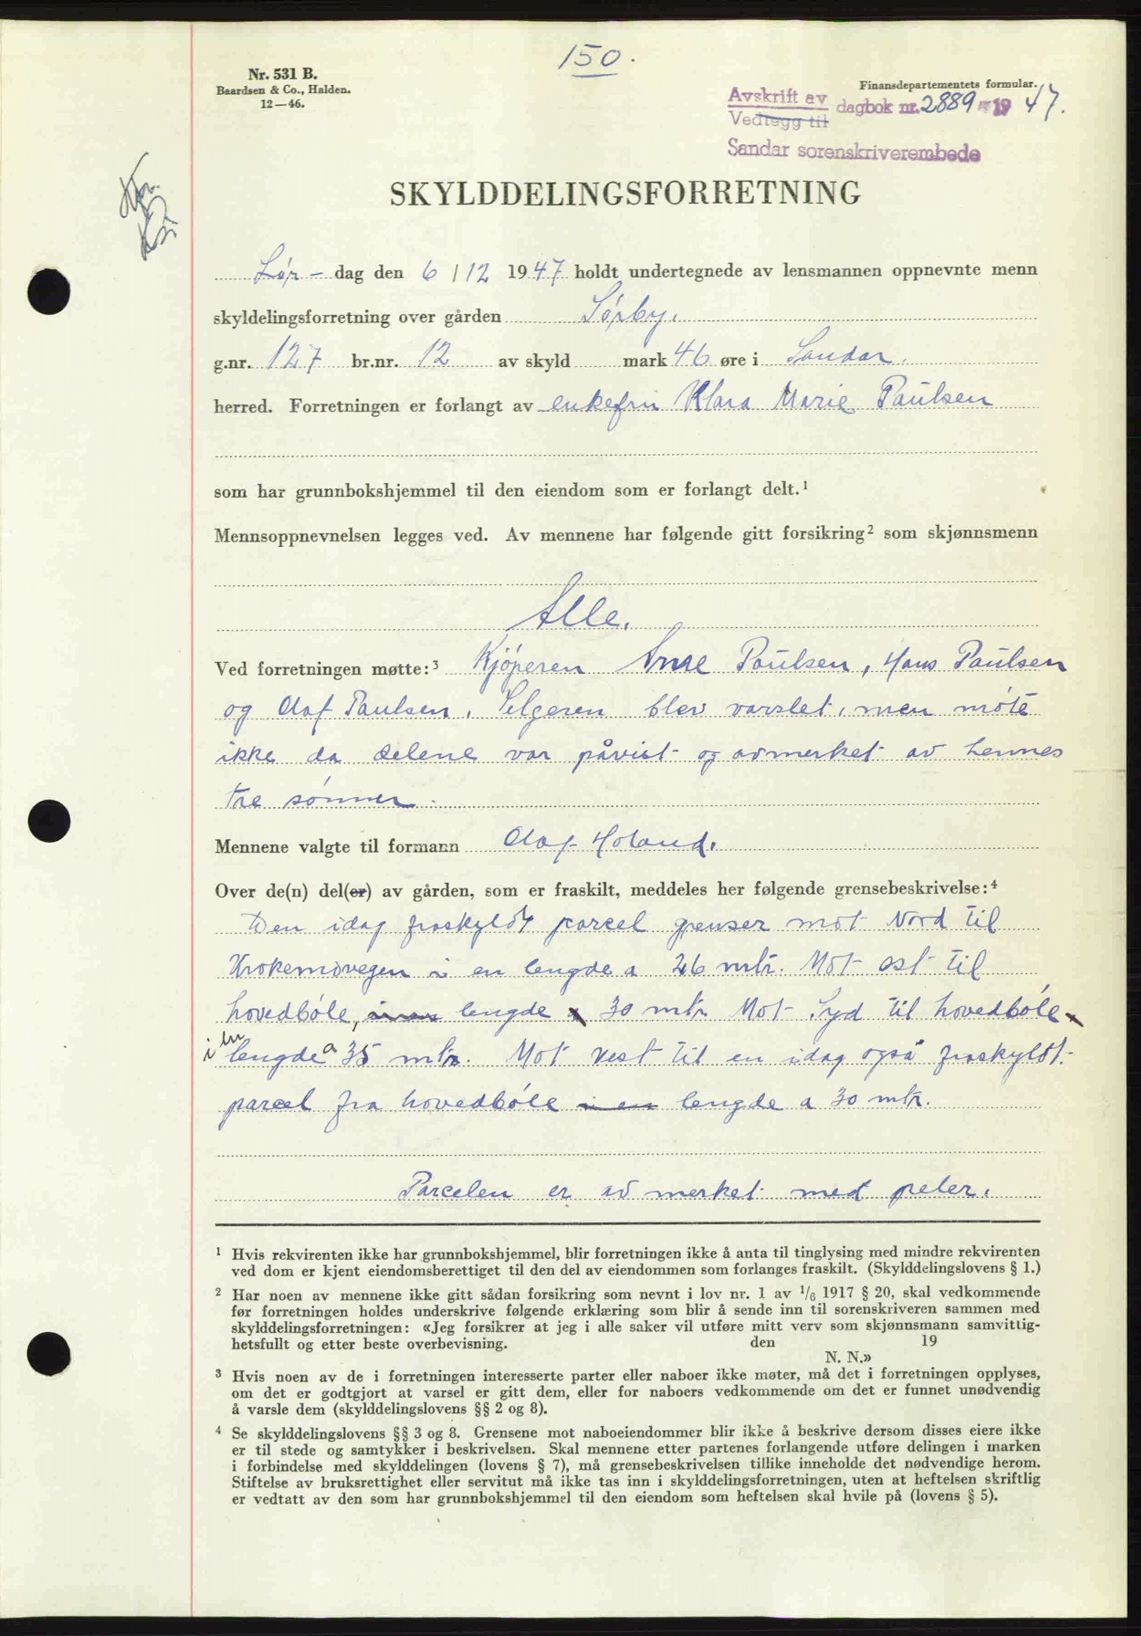 150.
Nr. 531 B.
Baardsen & Co., Halden.
12—46.
Finansdepartementets formular.
Avskrift av
Vedlegg til
dagbok nr. 2889 1947.
Sandar sorenskriverembede
SKYLDDELINGSFORRETNING
Lør- dag den 6/12 1947 holdt undertegnede av lensmannen oppnevnte menn
skyldelingsforretning over gården Sørby.
g.nr. 127 br.nr. 12 av skyld mark 46 øre i Sandar.
herred. Forretningen er forlangt av enkefru Klara Marie Paulsen
som har grunnbokshjemmel til den eiendom som er forlangt delt.¹
Mennsoppnevnelsen legges ved. Av mennene har følgende gitt forsikring² som skjønnsmenn
Alle.
Ved forretningen møtte:³ Kjøperen Arne Paulsen, Hans Paulsen
og Olaf Paulsen. Selgeren blev varslet, men møte
ikke da delene var påvist og avmerket av hennes
tre sønner.
Mennene valgte til formann Olaf Holand.
Over de(n) del(er) av gården, som er fraskilt, meddeles her følgende grensebeskrivelse:⁴
Den idag fraskyldt parcel grenser mot Nord til
Krokemovegen i en lengde a 26 mtr. Mot øst til
hovedbøle, i en lengde 30 mtr Mot Syd til hovedbøle
i en lengde a 35 mtr. Mot vest til en idag også fraskyldt
parcel fra hovedbøle i en lengde a 30 mtr.
Parcelen er avmerket med peler.
¹ Hvis rekvirenten ikke har grunnbokshjemmel, blir forretningen ikke å anta til tinglysing med mindre rekvirenten
ved dom er kjent eiendomsberettiget til den del av eiendommen som forlanges fraskilt. (Skylddelingslovens § 1.)
² Har noen av mennene ikke gitt sådan forsikring som nevnt i lov nr. 1 av 1/6 1917 § 20, skal vedkommende
før forretningen holdes underskrive følgende erklæring som blir å sende inn til sorenskriveren sammen med
skylddelingsforretningen: «Jeg forsikrer at jeg i alle saker vil utføre mitt verv som skjønnsmann samvittig-
hetsfullt og etter beste overbevisning. den 19
N. N.»
³ Hvis noen av de i forretningen interesserte parter eller naboer ikke møter, må det i forretningen opplyses,
om det er godtgjort at varsel er gitt dem, eller for naboers vedkommende om det er funnet unødvendig
å varsle dem (skylddelingslovens §§ 2 og 8).
⁴ Se skylddelingslovens §§ 3 og 8. Grensene mot naboeiendommer blir ikke å beskrive dersom disses eiere ikke
er til stede og samtykker i beskrivelsen. Skal mennene etter partenes forlangende utføre delingen i marken
i forbindelse med skylddelingen (lovens § 7), må grensebeskrivelsen tillike inneholde det nødvendige herom.
Stiftelse av bruksrettighet eller servitut må ikke tas inn i skylddelingsforretningen, uten at heftelsen skriftlig
er vedtatt av den som har grunnbokshjemmel til den eiendom som heftelsen skal hvile på (lovens § 5).